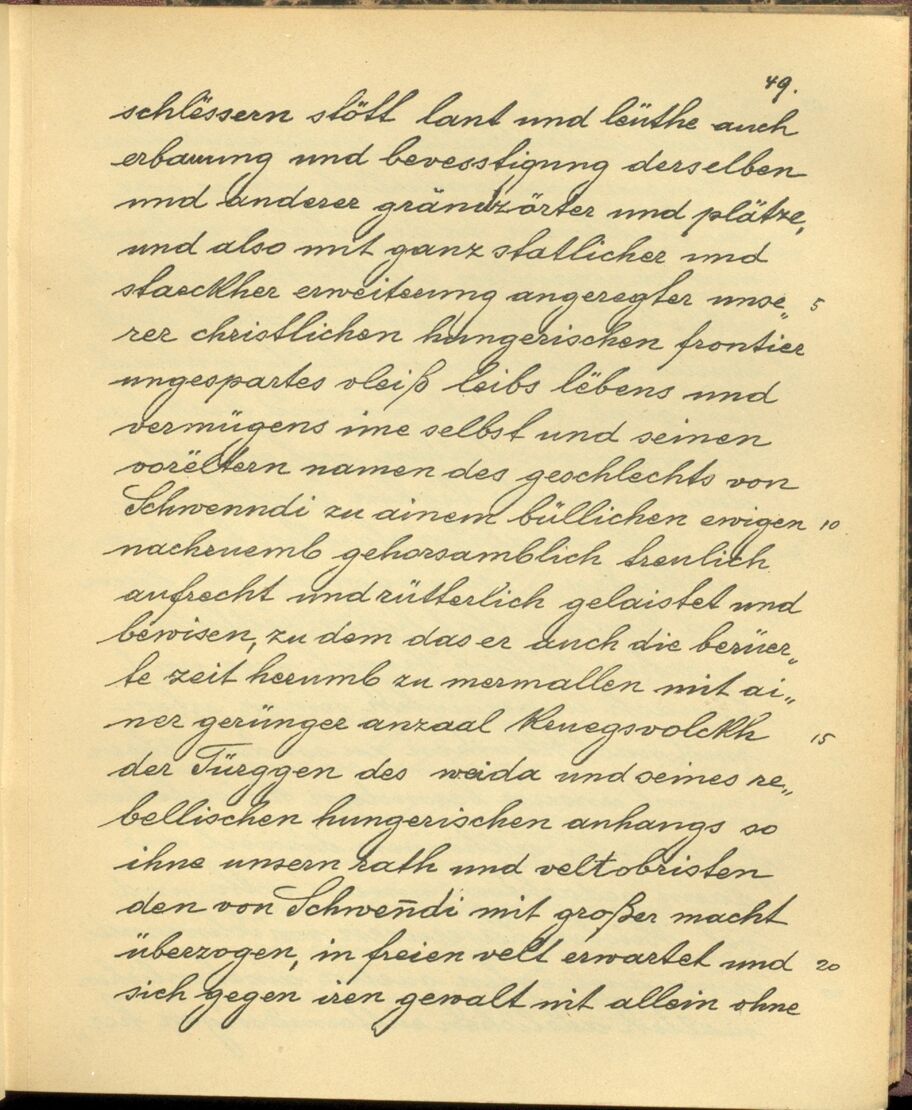 49.
schlössern stött lant und leüthe auch
erbauung und bevesstigung derselben
und anderer gränizörter und plätze,
und also mit ganz statlicher und
staeckher erweiterung angeregter unse„ 5
rer christlichen hungerischen frontier
ungespartes vleiß leibs lëbens und
vermügens ime selbst und seinen
vorëltern namen des geschlechts von
Schwenndi zu ainem büllichen ewigen 10
nachruemb gehorsamblich treulich
aufrecht und rütterlich gelaistet und
bewisen, zu dem das er auch die berüer„
te zeit herumb zu mermallen mit ai„
ner gerünger anzaal kruegsvolckh 15
der Türggen des weida und seines re„
bellischen hungerischen anhangs so
ihne unsern rath und veltobristen
den von Schwen̄di mit großer macht
überzogen, in freien velt erwartet und 20
sich gegen iren gewalt nit allein ohne